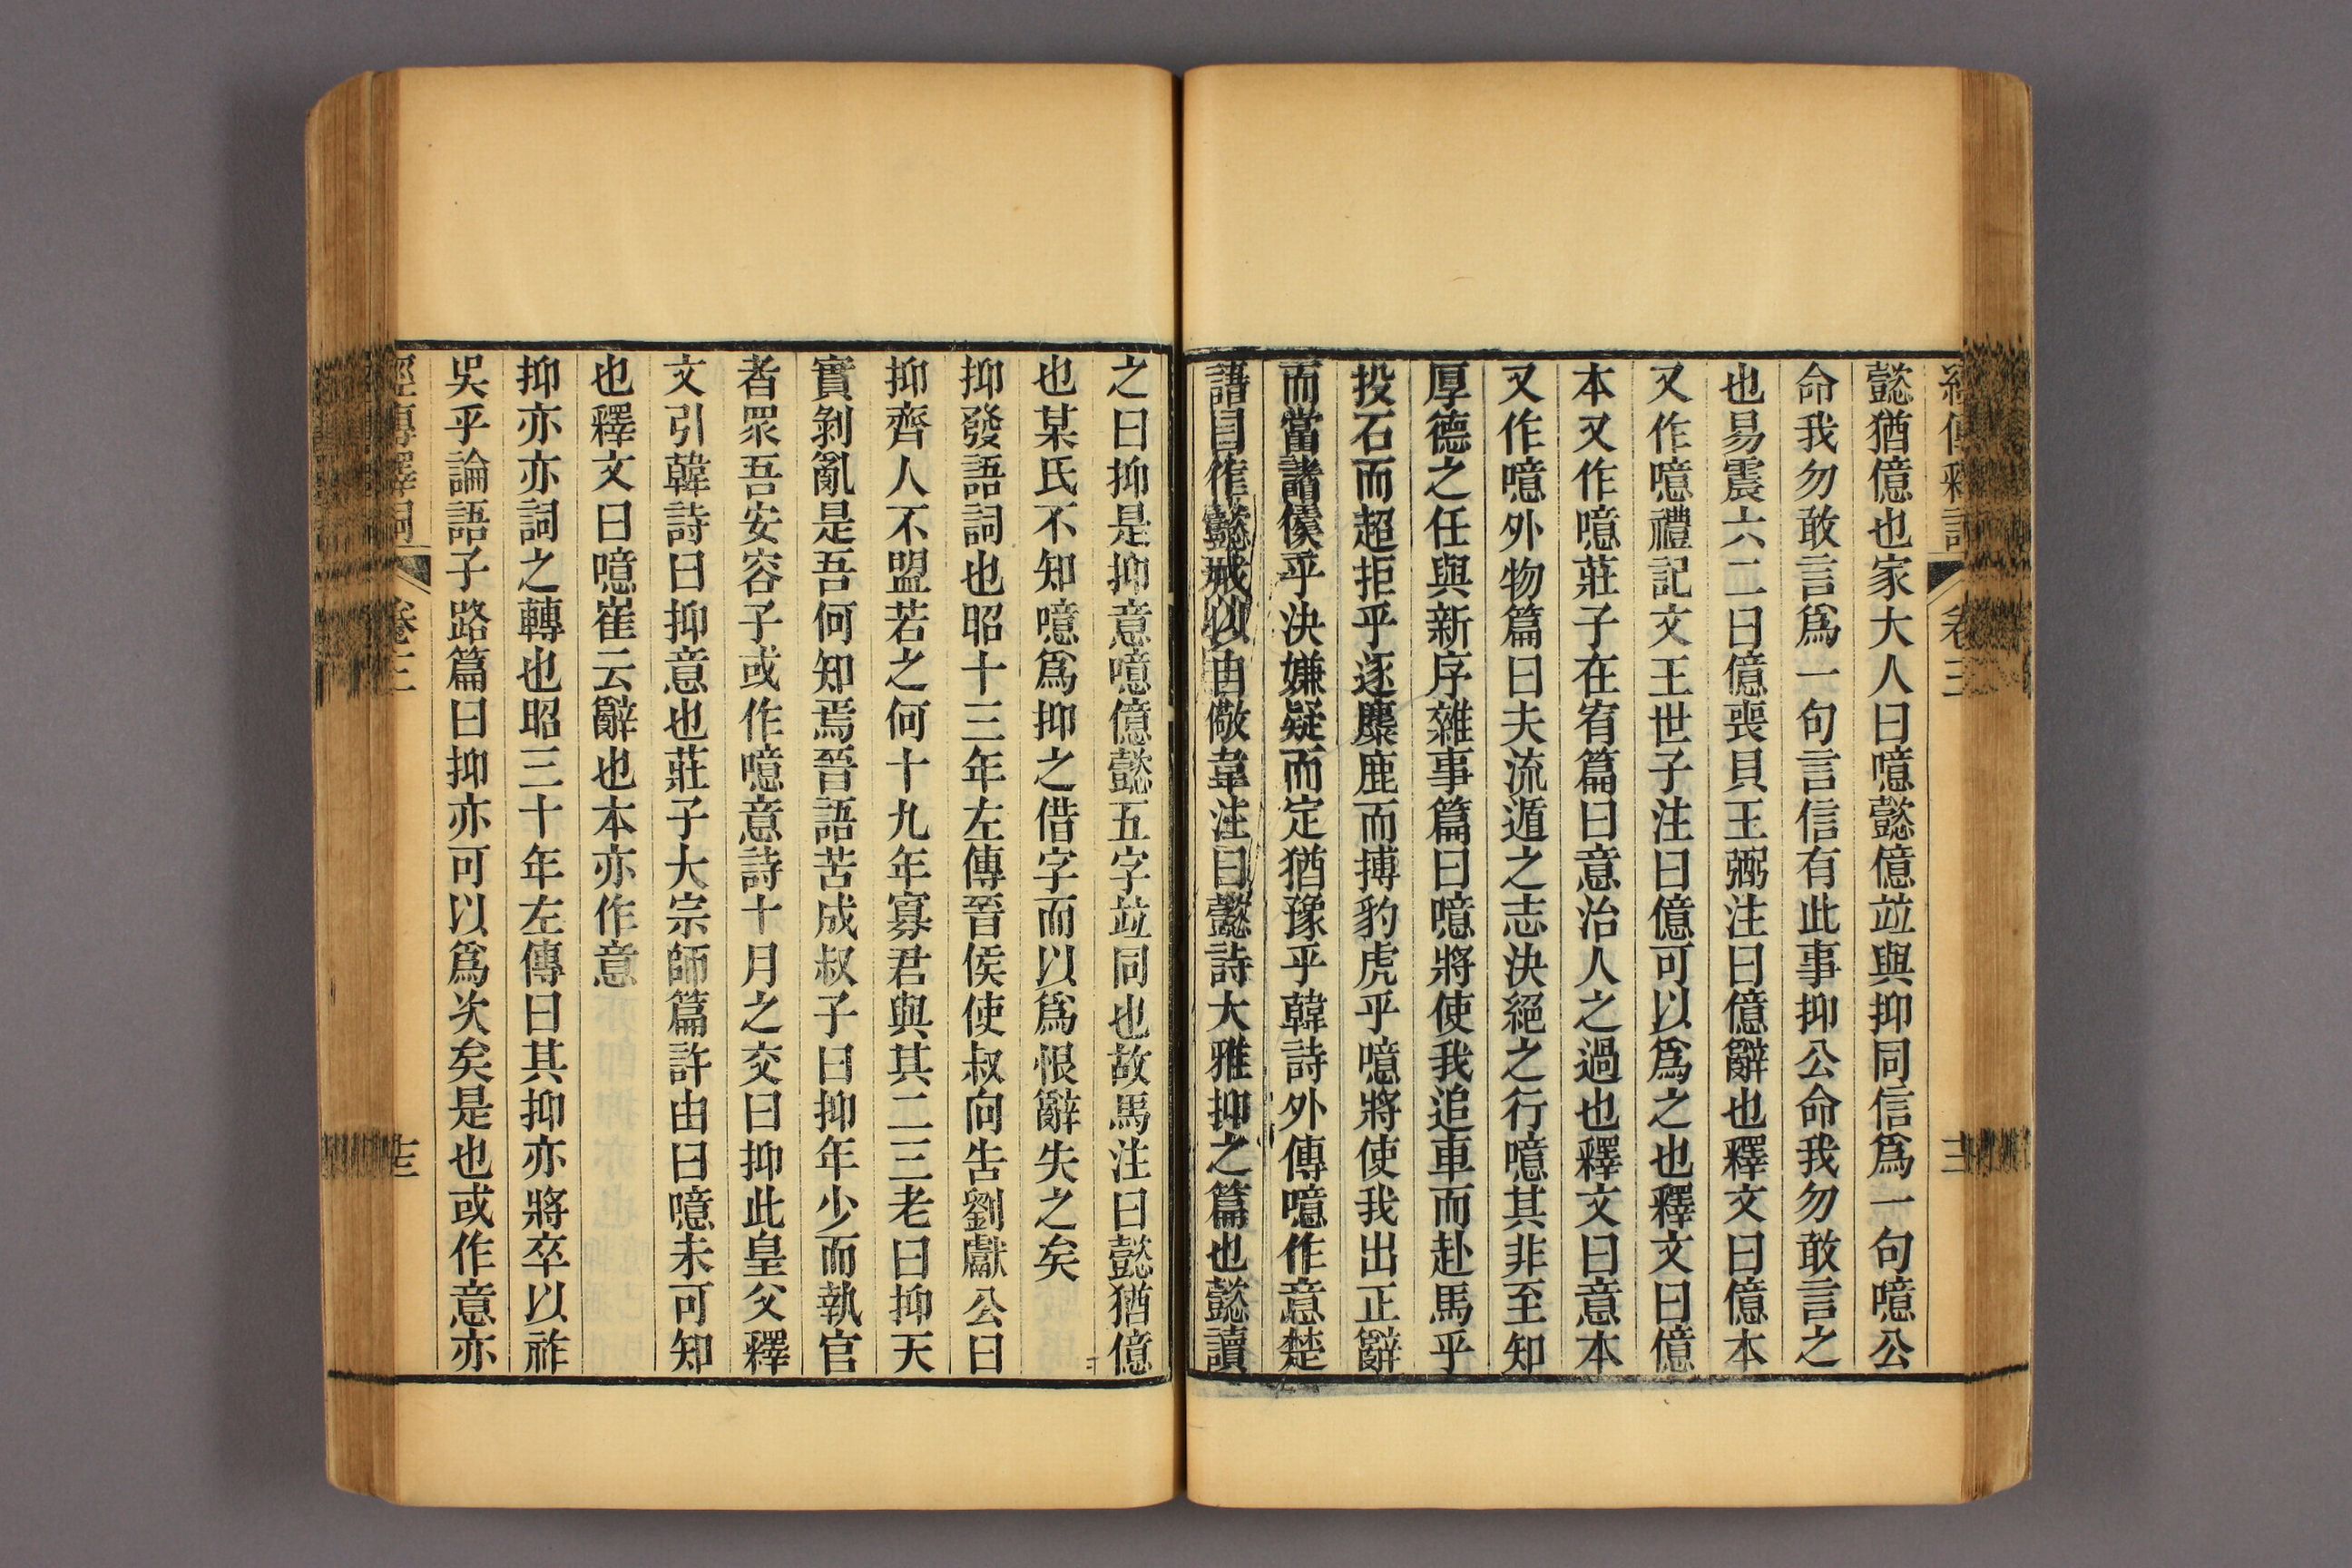 經傳釋詞 卷三 十二
懿猶億也家大人曰噫懿億竝與抑同信爲一句噫公
命我勿敢言爲一句言信有此事抑公命我勿敢言之
也易震六二曰億喪貝王弼注曰億辭也釋文曰億本
又作噫禮記文王世子注曰億可以爲之也釋文曰億
本又作噫莊子在宥篇曰意治人之過也釋文曰意本
又作噫外物篇曰夫流遁之志決絕之行噫其非至知
厚德之任與新序雜事篇曰噫將使我追車而赴馬乎
投石而超拒乎逐麋鹿而搏豹虎乎噫將使我出正辭
而當諸侯乎決嫌疑而定猶豫乎韓詩外傳噫作意楚
語曰作懿戒以自儆韋注曰懿詩大雅抑之篇也懿讀
之曰抑是抑意噫億懿五字竝同也故馬注曰懿猶億
也某氏不知噫爲抑之借字而以爲恨辭失之矣
抑發語詞也昭十三年左傳晉侯使叔向告劉獻公曰
抑齊人不盟若之何十九年寡君與其二三老曰抑天
實剝亂是吾何知焉晉語苦成叔子曰抑年少而執官
者眾吾安容子或作噫意詩十月之交曰抑此皇父釋
文引韓詩曰抑意也莊子大宗師篇許由曰噫未可知
也釋文曰噫崔云辭也本亦作意
抑亦亦詞之轉也昭三十年左傳曰其抑亦將卒以祚
吳乎論語子路篇曰抑亦可以爲次矣是也或作意亦
經傳釋詞 卷三 十三